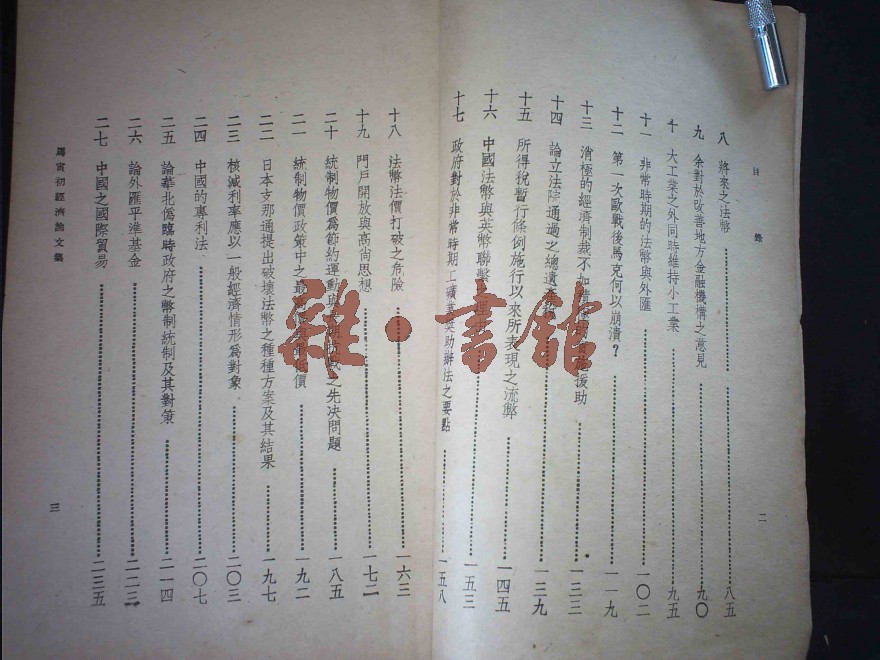 目錄
二
八 將來之法幣 八五
九 余對於改善地方金融機構之意見 九〇
十 大工業之外同時維持小工業 九五
十一 非常時期的法幣與外匯 一〇二
十二 第一次歐戰後馬克何以崩潰？ 一一九
十三 消極的經濟制裁不如積極 援助 一三三
十四 論立法院通過之總遺產 一三九
十五 所得稅暫行條例施行以來所表現之流弊 一四五
十六 中國法幣與英幣聯繫 理 一五三
十七 政府對於非常時期工礦業獎助辦法之要點 一五八
十八 法幣法價打破之危險 一六三
十九 門戶開放與高尚思想 一七二
二十 統制物價爲節約運動與 之先決問題 一八五
二一 統制物價政策中之最高價與最低價 一九二
二二 日本支那通提出破壞法幣之種種方案及其結果 一九七
二三 核減利率應以一般經濟情形爲對象 二〇三
二四 中國的專利法 二〇七
二五 論華北僞臨時政府之幣制統制及其對策 二一四
二六 論外匯平準基金 二二三
二七 中國之國際貿易 二三五
馬寅初經濟論文集
三
雜·書館